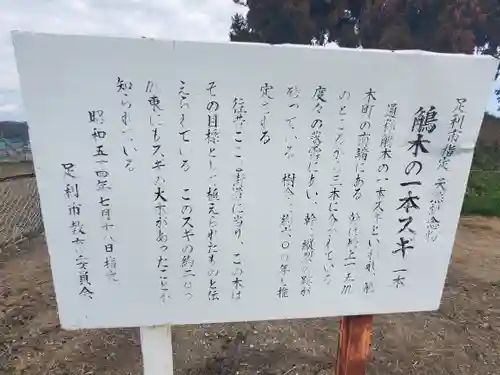 足利市指定天然記念物
鵤木の一本スギ 一本
通称鵤木の一本スギといわれ、鵤
木町の南端にある 幹は地上一五m
のところから三本に分かれている
度々の落雷にあい、幹に縦裂の跡が
残っている 樹令は約六〇〇年と推
定される
往昔ここに墓地があり、この木は
その目標として植えられたものと伝
えられている このスギの約二〇m
東にもスギの大木があったことが
知られている
昭和五十四年七月十八日指定
足利市教育委員会